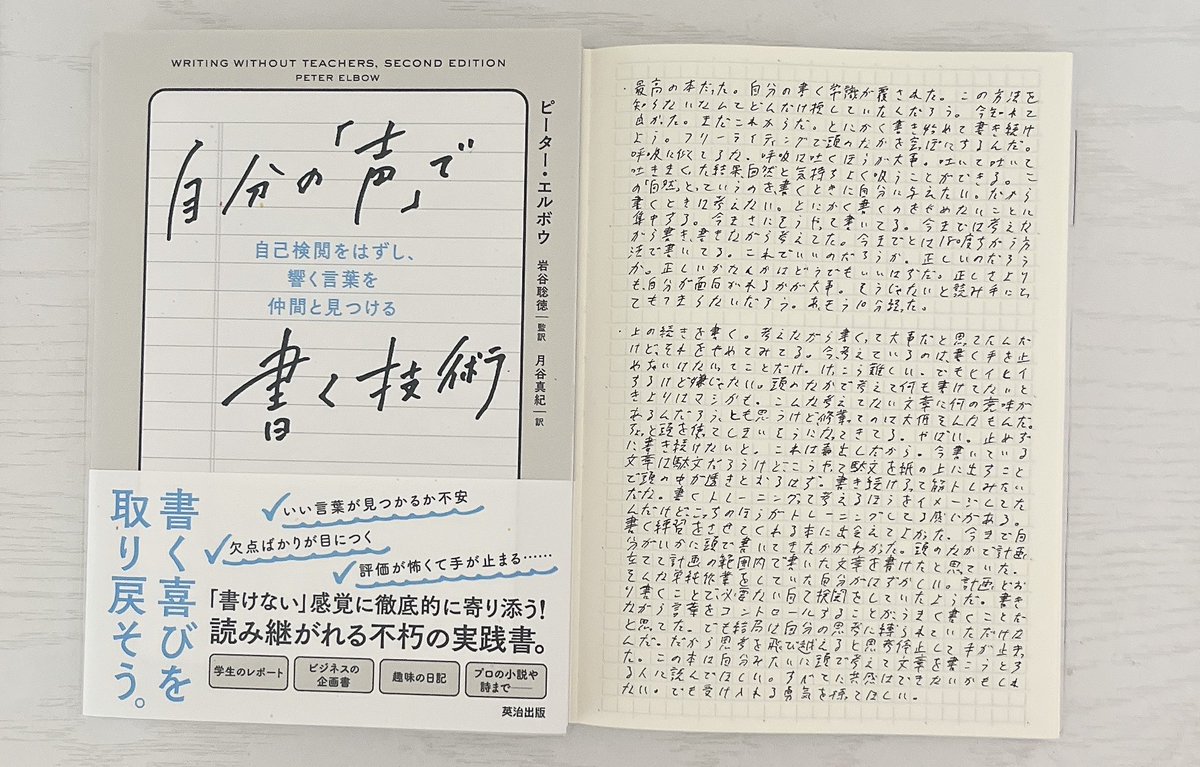 WRITING WITHOUT TEACHERS, SECOND EDITION
PETER ELBOW
自分の「声」で
自己検閲をはずし、
響く言葉を
仲間と見つける
書く技術
ピーター・エルボウ
岩谷聡徳｜監訳
月谷真紀｜訳
書く喜びを
取り戻そう。
いい言葉が見つかるか不安
欠点ばかりが目につく
評価が怖くて手が止まる……
「書けない」感覚に徹底的に寄り添う!
読み継がれる不朽の実践書。
学生のレポート
ビジネスの
企画書
趣味の日記
プロの小説や
詩まで――
英治出版
・最高の本だった。自分の書く学術が覆された。この方法を
知らないなんてどんだけ損していたんだろう。今知れて
良かった。まだこれからだ。とにかく書き始めて書き続け
よう。フリーライティングで頭のなかを空っぽにするんだ。
呼吸に似てるな。呼吸は吐くほうが大事。吐いて吐いて
吐きまくった結果自然と気持ちよく吸うことができる。こ
の「自然と」っていうのを書くときに自分に与えたい。だから
書くときは考えない。とにかく書くのをやめないことに
集中する。今まさにそうやって書いてる。今までは考えな
がら書き、書きながら考えてた。今までとは180度ちがう方
法で書いてる。これでいいのだろうか。正しいのだろう
か。正しいかなんかはどうでもいいはずだ。正しさより
も自分が面白がれるかが大事。そうじゃないと読み手にと
てもつまらないだろう。あもう10分経った。
・上の続きを書く。考えながら書くって大事だと思ってたんだ
けど、それをやめてみてる。今考えているのは書く手を止
めないけないってことだけ。けっこう難しい。でもヒイヒイ
するけど嫌じゃない。頭のなかで考えて何も書けてないと
きよりはマシかも。こんな考えてない文章に何の意味が
あるんだろう、とも思うけど修業ってのは大体そんなもんだ。
ちょっと頭を使ってしまいそうになってきてる。やばい。止めず
に書き続けたいと。これは毒出しだから。今書いている
文章は駄文だろうけどこうやって駄文を紙の上に出すこと
で頭の中が透きとおるはず。書き続けるって筋トレみたい
だな。書くトレーニングって考えるほうをイメージしてた
んだけどこっちのほうがトレーニングしてる感じがある。
書く練習をさせてくれる本に出会えてよかった。今まで自
分がいかに頭で書いてきたかがわかった。頭のなかで計画
立てて計画の範囲内で書いた文章を書けたと思っていた。
そんな単純作業をしていたなんてはずかしい。計画どお
り書くことで必要ない自己検閲をしていたようだ。書き
ながら言葉をコントロールすることがうまく書くことだ
と思ってた。でも結局は自分の思考に縛られていただけな
んだ。だから思考を飛び越えると思考停止して手が止まっ
た。この本は自分みたいに頭で考えて文章を書こうとす
る人に読んでほしい。すべてに共感はできないかもしれ
ない。でも受け入れる勇気を持ってほしい。